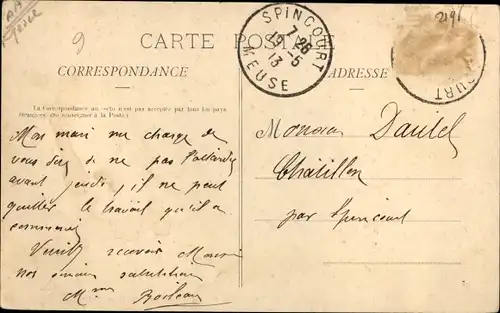 9
2191
CARTE POSTALE
SPINCOURT
7-25
19-5
13
MEUSE
CORRESPONDANCE
ADRESSE
La Correspondance au recto n'est pas acceptée par tous les pays
étrangers (Se renseigner à la Poste)
Mon mari me charge de
vous dire de ne pas l'attendre
avant jeudi, il ne peut
quitter le travail qu'il a
commencé
Veuillez recevoir Monsieur
nos sincères salutations
Mme Boileau
Monsieur Dautel
Châtillon
par Spincourt